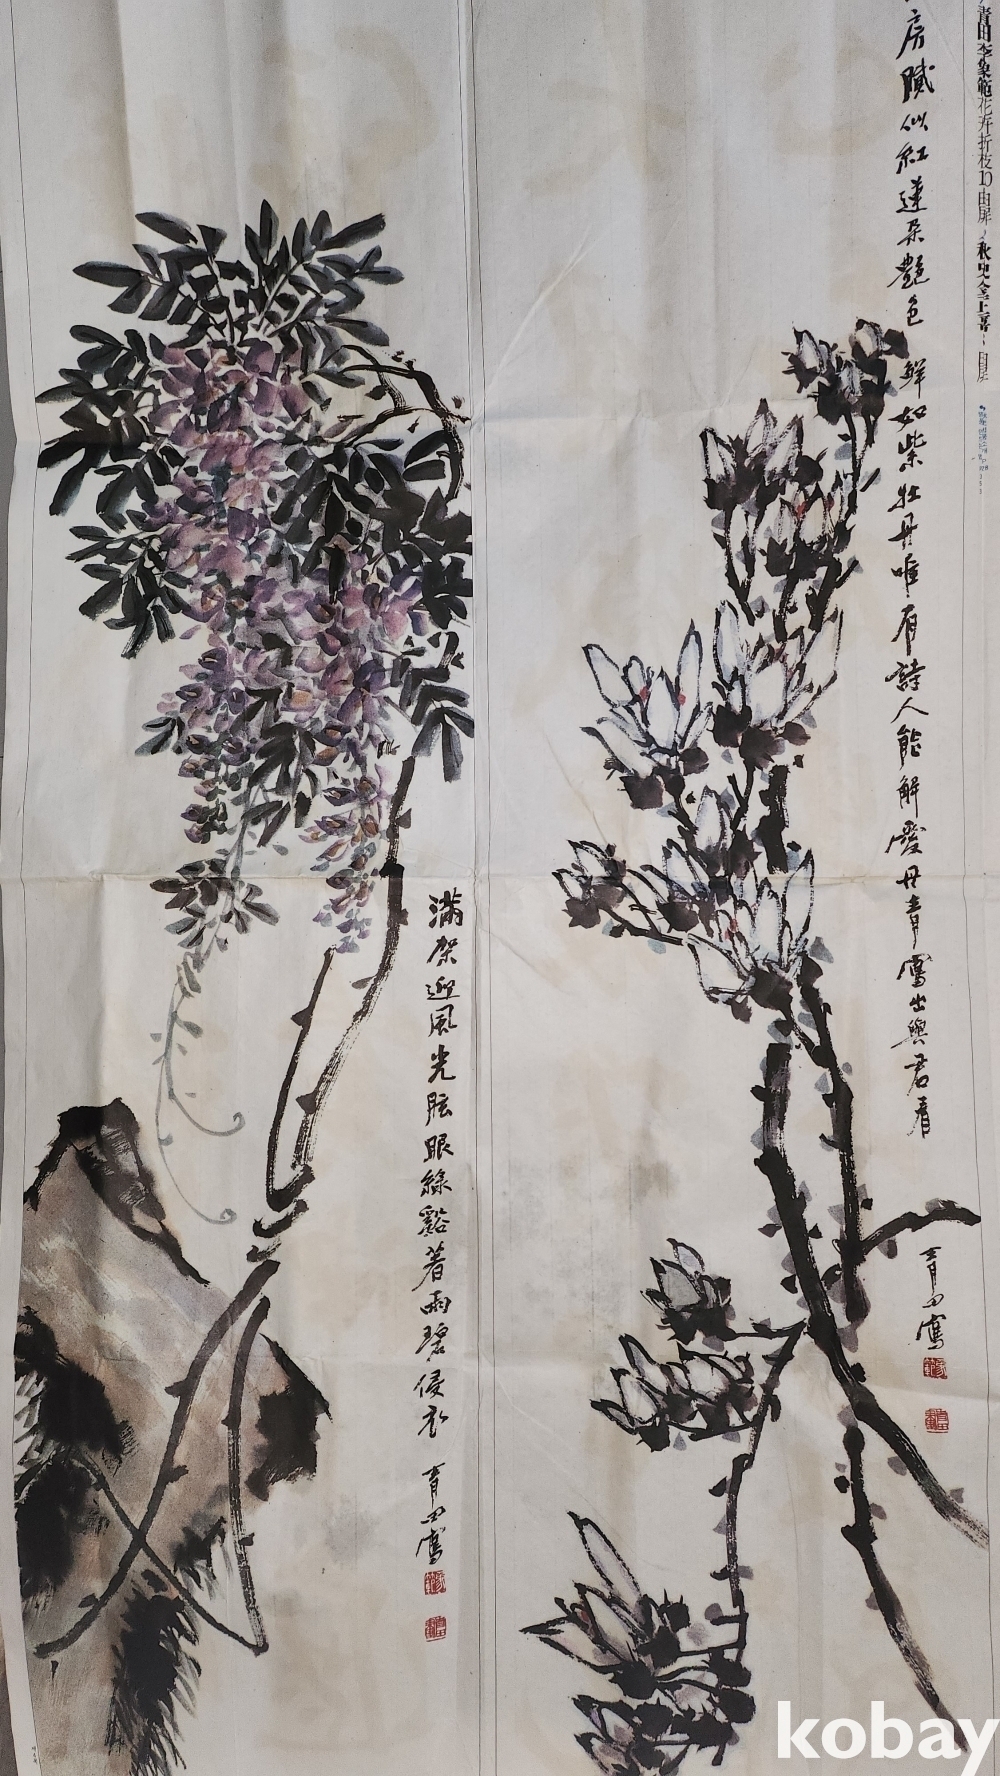 青田李象範花卉折枝10曲屏
房膩似紅蓮朶艶色鮮如紫牡丹唯有詩人能解愛丹青寫出與君看
青田寫
滿架迎風光眩眼綠谿著雨碧侵衣
青田寫
kobay